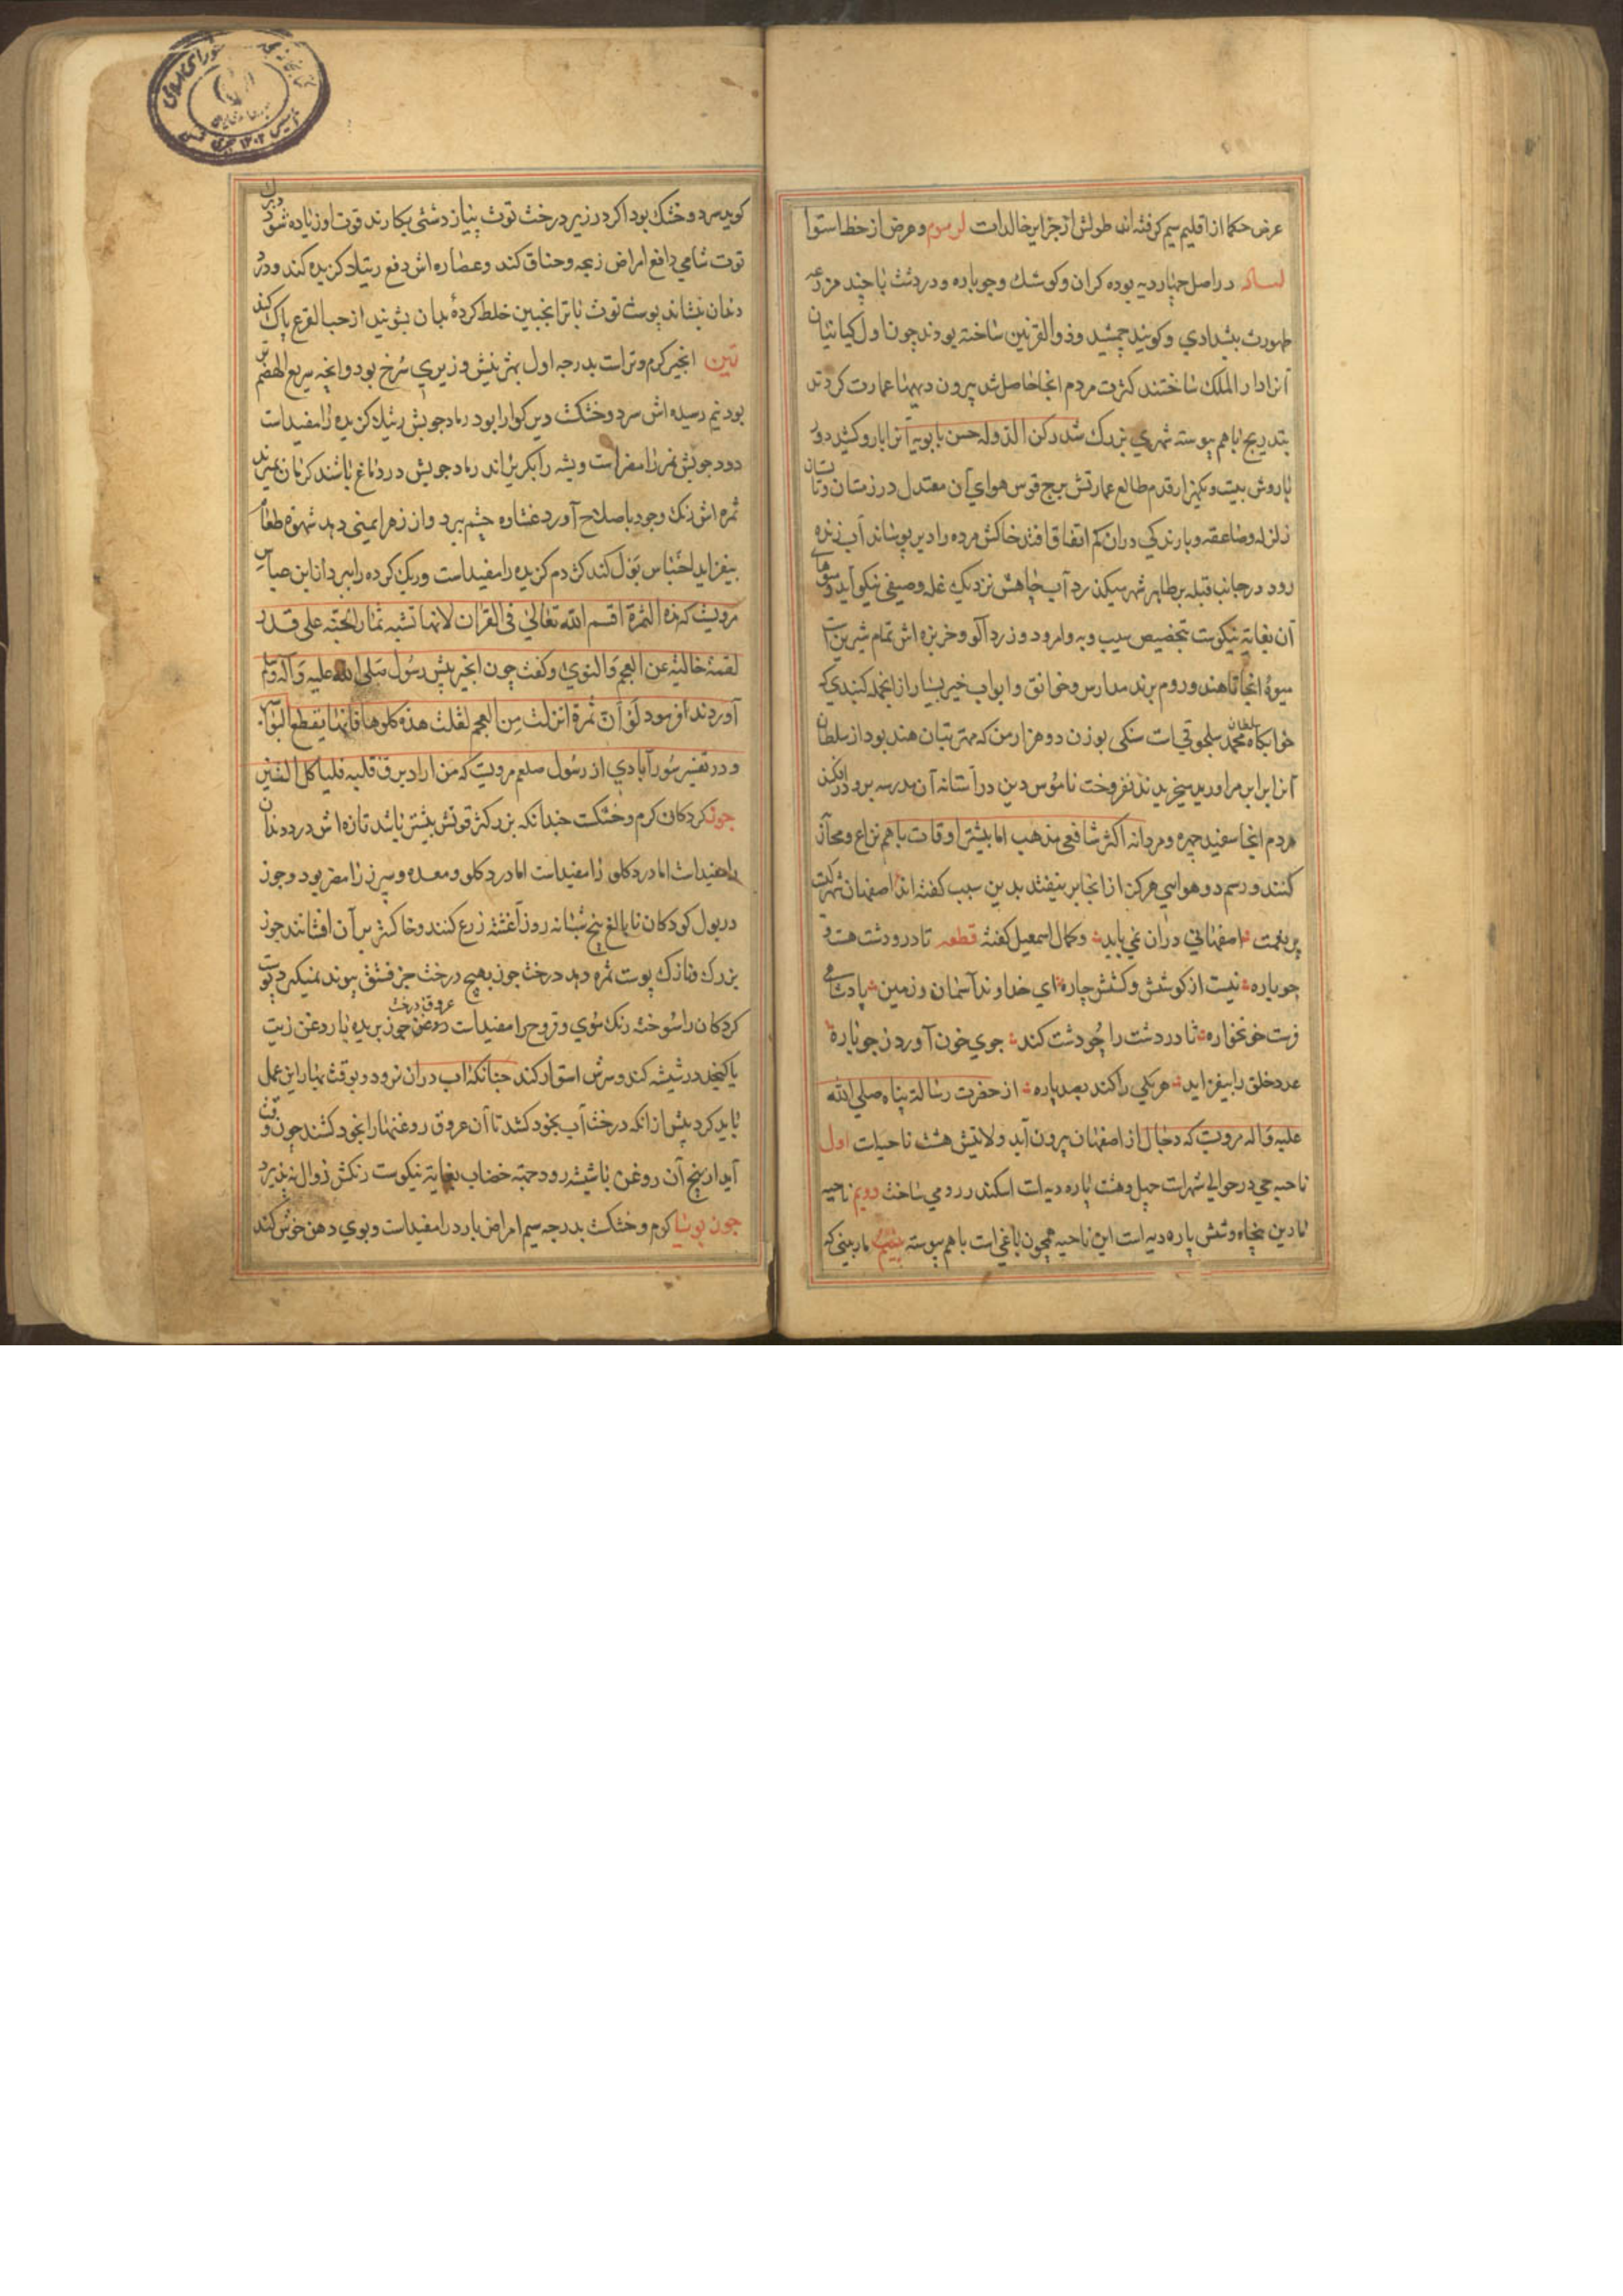 عرض حکما از اقلیم سیم گرفته‌اند طولش از جزایر خالدات لر سوم و عرض از خط استوا
لساله در اصل چهار دیه بوده کران و کوشك و جوباره و دردشت با چند مزرعه
طهمورث پیشدادي و کویند جمشید و ذوالقرنین ساخته بودند چون اول کیانیان
آنرا دار الملك ساختند کثرت مردم انجا حاصل شد بیرون دیهها عمارت کردند
بتدریج باهم پیوسته شهري بزرك شد رکن الدوله حسن بابویه آنرا بارو کشید دور
باروش بیست و یکهزار قدم طالع عمارتش برج قوس هواي آن معتدل در زمستان و تابستان
زلزله و صاعقه و بارندکي دران کم اتفاق افتد خاکش مرده را دیر پوساند آب زنده
رود در جانب قبله بر ظاهر شهر میکذرد آب چاهش نزدیك غله و صیفي نیکو آید و میوهاي
آن بغایة نیکوست بتخصیص سیب و به و امرود و زردآلو و خربزه اش تمام شیرین است
میوهٔ انجا تا هند و روم برند مدارس و خوانق و ابواب خیر بسیار از انجمله کنبدي که
خوابکاه سلطان محمد سلجوقي است سنکی بوزن دو هزار من که مهتر بتان هند بود از سلطان
آنرا برابر مروارید میخریدند نفروخت ناموس دین در آستانه آن مدرسه برو در افکند
مردم انجا سفید چهره و مردانه اکثر شافعي مذهب اما بیشتر اوقات باهم نزاع و محاز
کنند و رسم دو هوایي هرکز از انجا بر نیفتد بدین سبب کفته اند اصفهان شهرکیست
پر نعمت اصفهاني دران نمي باید و کمال اسمعیل کفته قطعه تا در و دشت هست و
جوباره نیست از کوشش و کشش چاره اي خداوند آسمان و زمین پادشاهي
فرست خونخواره تا دردشت را چو دشت کند جوي خون آورد ز جوباره
عدد خلق را بیفزاید هر یکي را کند بصد پاره از حضرت رسالة پناه صلي الله
علیه و اله مرویست که دجال از اصفهان بیرون آید ولایتش هشت ناحیات اول
ناحیه جي در حوالي شهرات چهل و هشت پاره دیه است اسکندر رومي ساخت دویم ناحیه
ماربین پنجاه و شش پاره دیه است این ناحیه همچون باغي است باهم پیوسته ماربیني که
کویند سرد و خشك بود اکر در زیر درخت توت پیاز دشتی بکارند قوت او زیاده شود و برك
توت شامي دافع امراض زبحه و خناق کند و عصاره اش دفع رتیلا کزیده کند و درد
دندان بنشاند پوست توث با ترانجبین خلط کرده بدان بشویند از حب القرع پاك کند
تین انجیر کرم و تراست بدرجه اول بهترینش وزیري سرخ بود و انجه سریع الهضم تر
بود نیم رسیده اش سرد و خشکست دیر کوارا بود رماد چوبش رتیلا کزیده را مفیدست
دود چوبش نمر را مضر است و پشه را بکریزاند رماد چوبش در دماغ باشند کرمان بمیرند
ثمره اش رنك وجود باصلاح آورد غشاوه چشم ببرد و از زهر ایمني دهد شهوة طعام
بیفزاید احتباس بول کند کژدم کزیده را مفیدست و ریك کرده را ببرد از ابن عباس
مرویست که هذه الثمرة اقسم الله تعالي في القران لانها تشبه ثمار الجنة علي قدر
لقمة خالیة عن العجم والنوي و کفت چون انجیر پیش رسول صلي الله علیه و آله و سلم
آوردند فرمود لو ان ثمرة انزلت من العجم لقلت هذه کلوها فانها یقطع البواسیر
و در تفسیر سورآبادي از رسول صلعم مرویست که من اراد یرق قلبه فلیاکل التین
جوز کردکان کرم و خشکست چندانکه بزرکتر قوتش بیشتر باشد تازه اش درد دندان
را مفیدست اما درد کلو را مفیدست اما درد کلو و معده و سپرز را مضر بود و جوز
در بول کودکان نابالغ پنج شبانه روز آغشته زرع کنند و خاکستر بر آن افشانند جوز
بزرك و نازك پوست ثمره دهد درخت جوز بهیچ درخت جز فستق پیوند نمیکیرد پوست
کردکان را سوخته رنك موي و قروح را مفیدست عروق درخت جوز بریده با روغن زیت
یا کنجد در شیشه کند و سرش استوار کند چنانکه آب دران نرود و بوقت بهار این عمل
باید کرد پیش از انکه درخت آب بخود کشد تا آن عروق روغنها را بخود کشند چون وقت
آید از بیخ آن روغن با شیشه رود جهة خضاب بغایة نیکوست رنکش زوال نپذیرد
جوز بویا کرم و خشکست بدرجه سیم امراض بارد را مفیدست و بوي دهن خوش کند